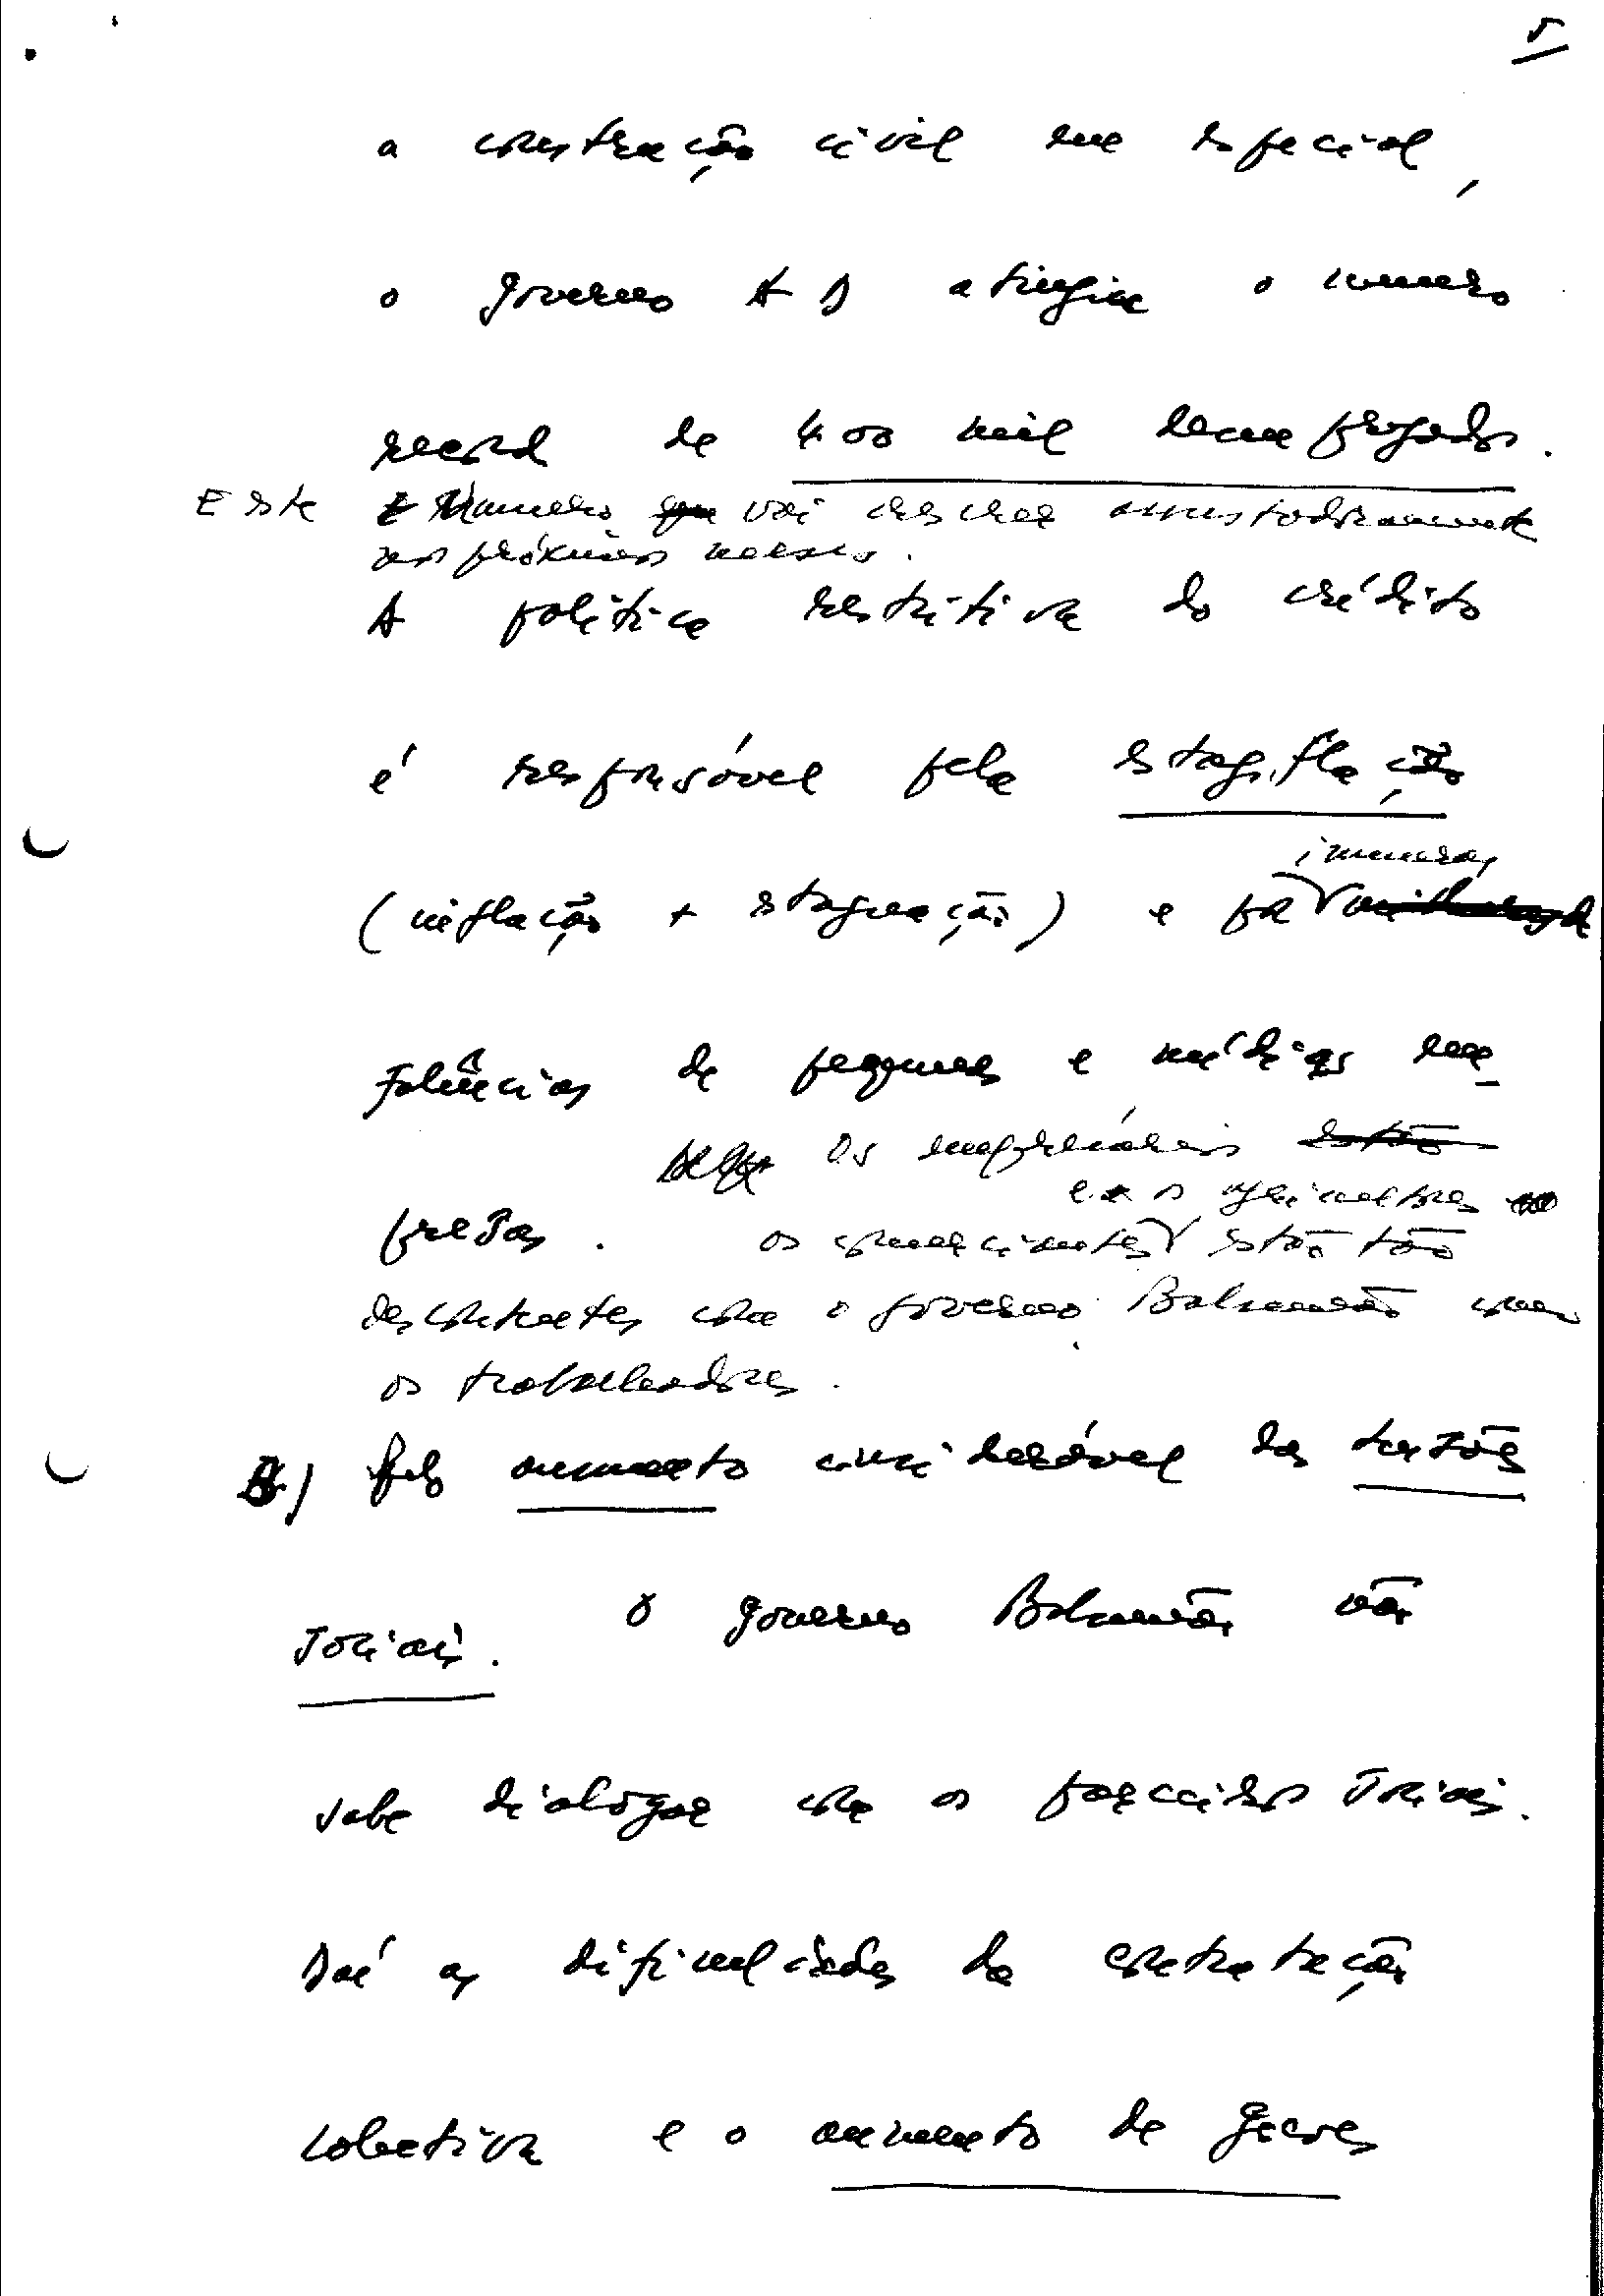 5
a construção civil em especial,
o governo AD atingiu o número
record de 400 mil desempregados.
Este número vai crescer assustadoramente
nos próximos meses.
A política restritiva do crédito
é responsável pela estagflação
inúmeras
(inflação + estagnação) e por
falências de pequenas e médias em-
Os empresários estão
e os agricultores
presas. os comerciantes estão tão
descontentes com o governo Balsemão como
os trabalhadores.
B) Pelo aumento considerável das tensões
sociais. O governo Balsemão não
sabe dialogar com os parceiros sociais.
Daí as dificuldades da contratação
colectiva e o aumento de greves